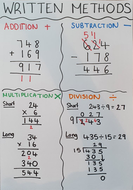 WRITTEN METHODS
ADDITION +
748
+ 169
917
11
SUBTRACTION -
51
624
- 178
446
MULTIPLICATION ×
Short 24
× 6
144
2
Long 34
× 16
204
2
340
544
DIVISION ÷
Short 243÷9=27
027
9 243
Long 435÷15=29
29
15 435
30↓
135
135
0